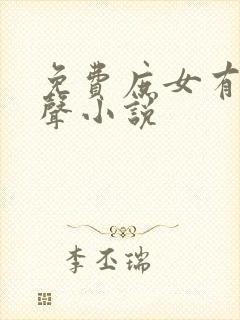 免費庶女有
聲小說
李丕瑞